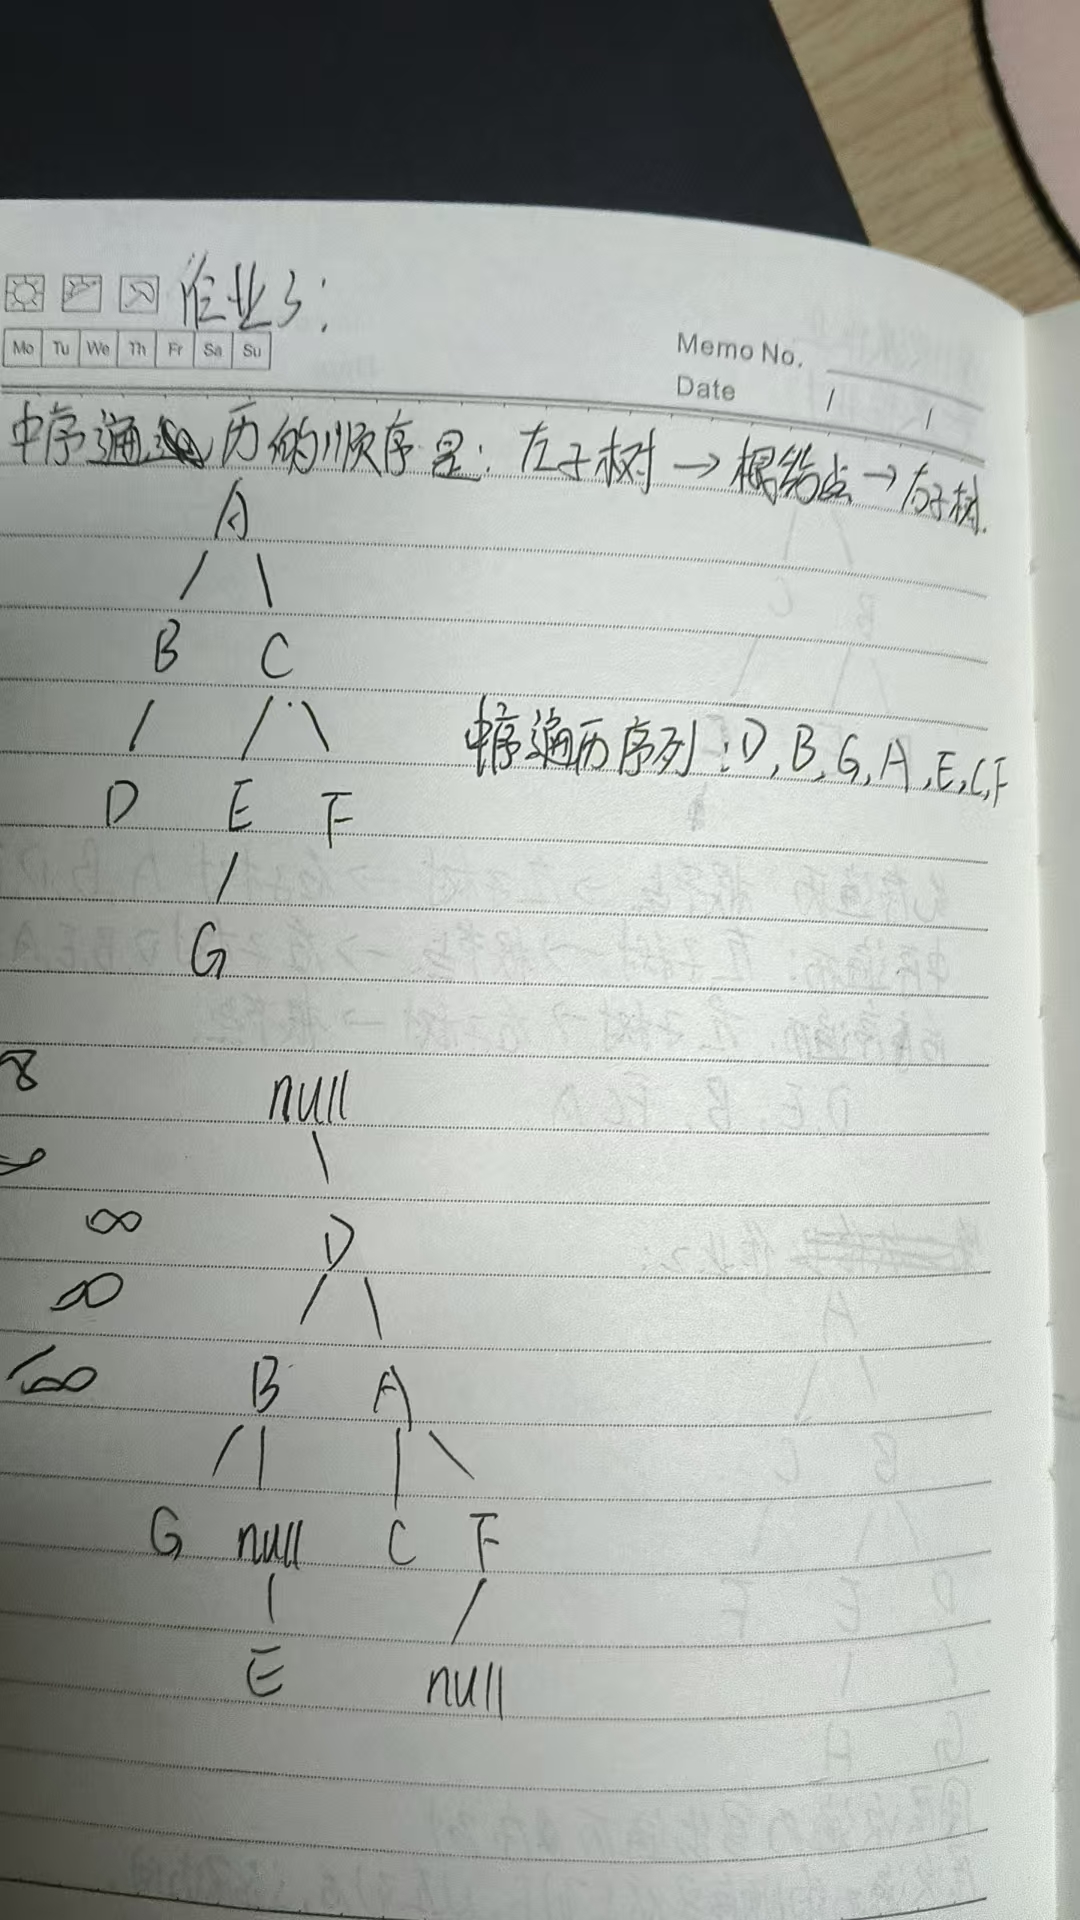 作业3:
Mo Tu We Th Fr Sa Su
Memo No.
Date / /
中序遍历的顺序是: 左子树 → 根结点 → 右子树.
A
B C
D E F
中序遍历序列: D, B, G, A, E, C, F
G
null
D
B A
G null C F
E null